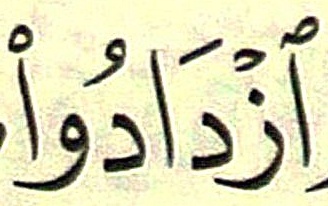 ٱزْدَادُوا۟